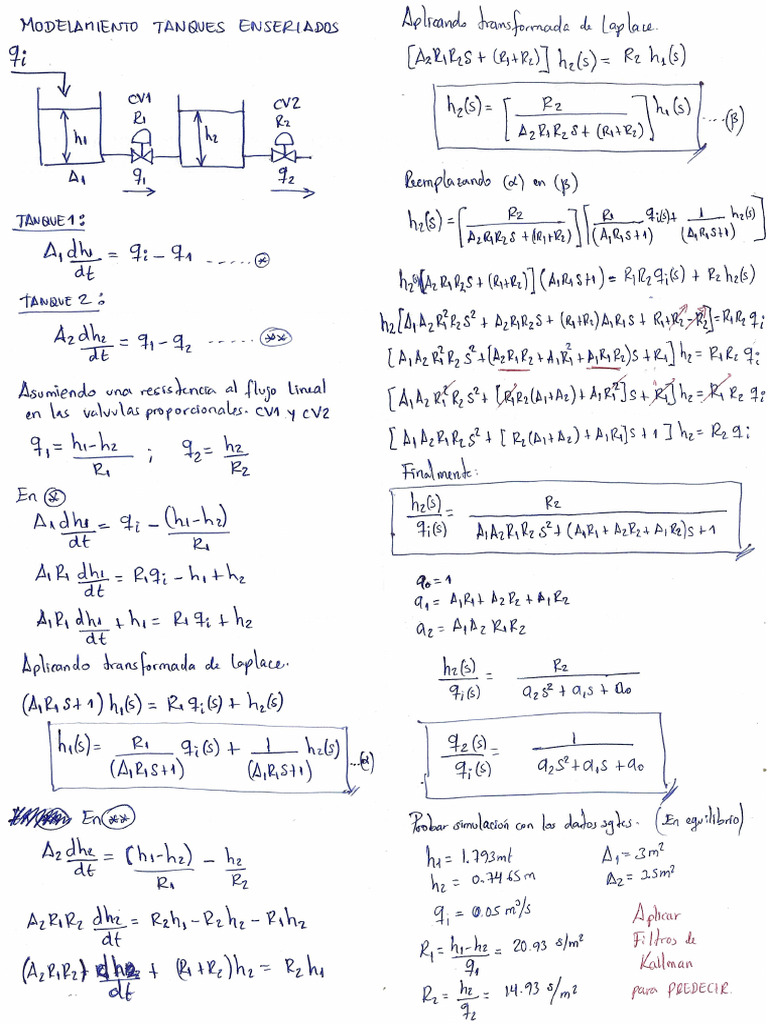 MODELAMIENTO TANQUES ENSERIADOS
qi
CV1
R1
CV2
R2
h1
h2
A1
q1
q2
TANQUE 1:
A1 dh1/dt = qi - q1 ...... *
TANQUE 2:
A2 dh2/dt = q1 - q2 ...... **
Asumiendo una resistencia al flujo lineal
en las valvulas proporcionales. CV1 y CV2
q1 = (h1-h2)/R1 ; q2 = h2/R2
En *
A1 dh1/dt = qi - (h1-h2)/R1
A1R1 dh1/dt = R1qi - h1 + h2
A1R1 dh1/dt + h1 = R1qi + h2
Aplicando transformada de Laplace.
(A1R1S+1) h1(s) = R1 qi(s) + h2(s)
h1(s) = R1/(A1R1S+1) qi(s) + 1/(A1R1S+1) h2(s) ...(α)
En **
A2 dh2/dt = (h1-h2)/R1 - h2/R2
A2R1R2 dh2/dt = R2h1 - R2h2 - R1h2
(A2R1R2) dh2/dt + (R1+R2)h2 = R2h1
Aplicando transformada de Laplace.
[A2R1R2S + (R1+R2)] h2(s) = R2 h1(s)
h2(s) = [R2/(A2R1R2S + (R1+R2))] h1(s) ....(β)
Reemplazando (α) en (β)
h2(s) = [R2/(A2R1R2S + (R1+R2))] [R1/(A1R1S+1) qi(s) + 1/(A1R1S+1) h2(s)]
h2(s) [A2R1R2S + (R1+R2)] (A1R1S+1) = R1R2qi(s) + R2h2(s)
h2[A1A2R1²R2S² + A2R1R2S + (R1+R2)A1R1S + R1+R2-R2] = R1R2qi
[A1A2R1²R2S² + (A2R1R2 + A1R1² + A1R1R2)S + R1] h2 = R1R2 qi
[A1A2R1²R2S² + [R1R2(A1+A2) + A1R1²]S + R1] h2 = R1R2 qi
[A1A2R1R2S² + [R2(A1+A2) + A1R1]S + 1] h2 = R2 qi
Finalmente:
h2(s)/qi(s) = R2/(A1A2R1R2S² + (A1R1 + A2R2 + A1R2)S + 1)
a0 = 1
a1 = A1R1 + A2R2 + A1R2
a2 = A1A2 R1R2
h2(s)/qi(s) = R2/(a2s² + a1s + a0)
q2(s)/qi(s) = 1/(a2s² + a1s + a0)
Probar simulación con los datos sgtes. (En equilibrio)
h1 = 1.793mt A1 = 3m²
h2 = 0.7465m A2 = 2.5m²
qi = 0.05 m³/s
R1 = (h1-h2)/q1 = 20.93 s/m²
R2 = h2/q2 = 14.93 s/m²
Aplicar
Filtros de
Kallman
para PREDECIR.